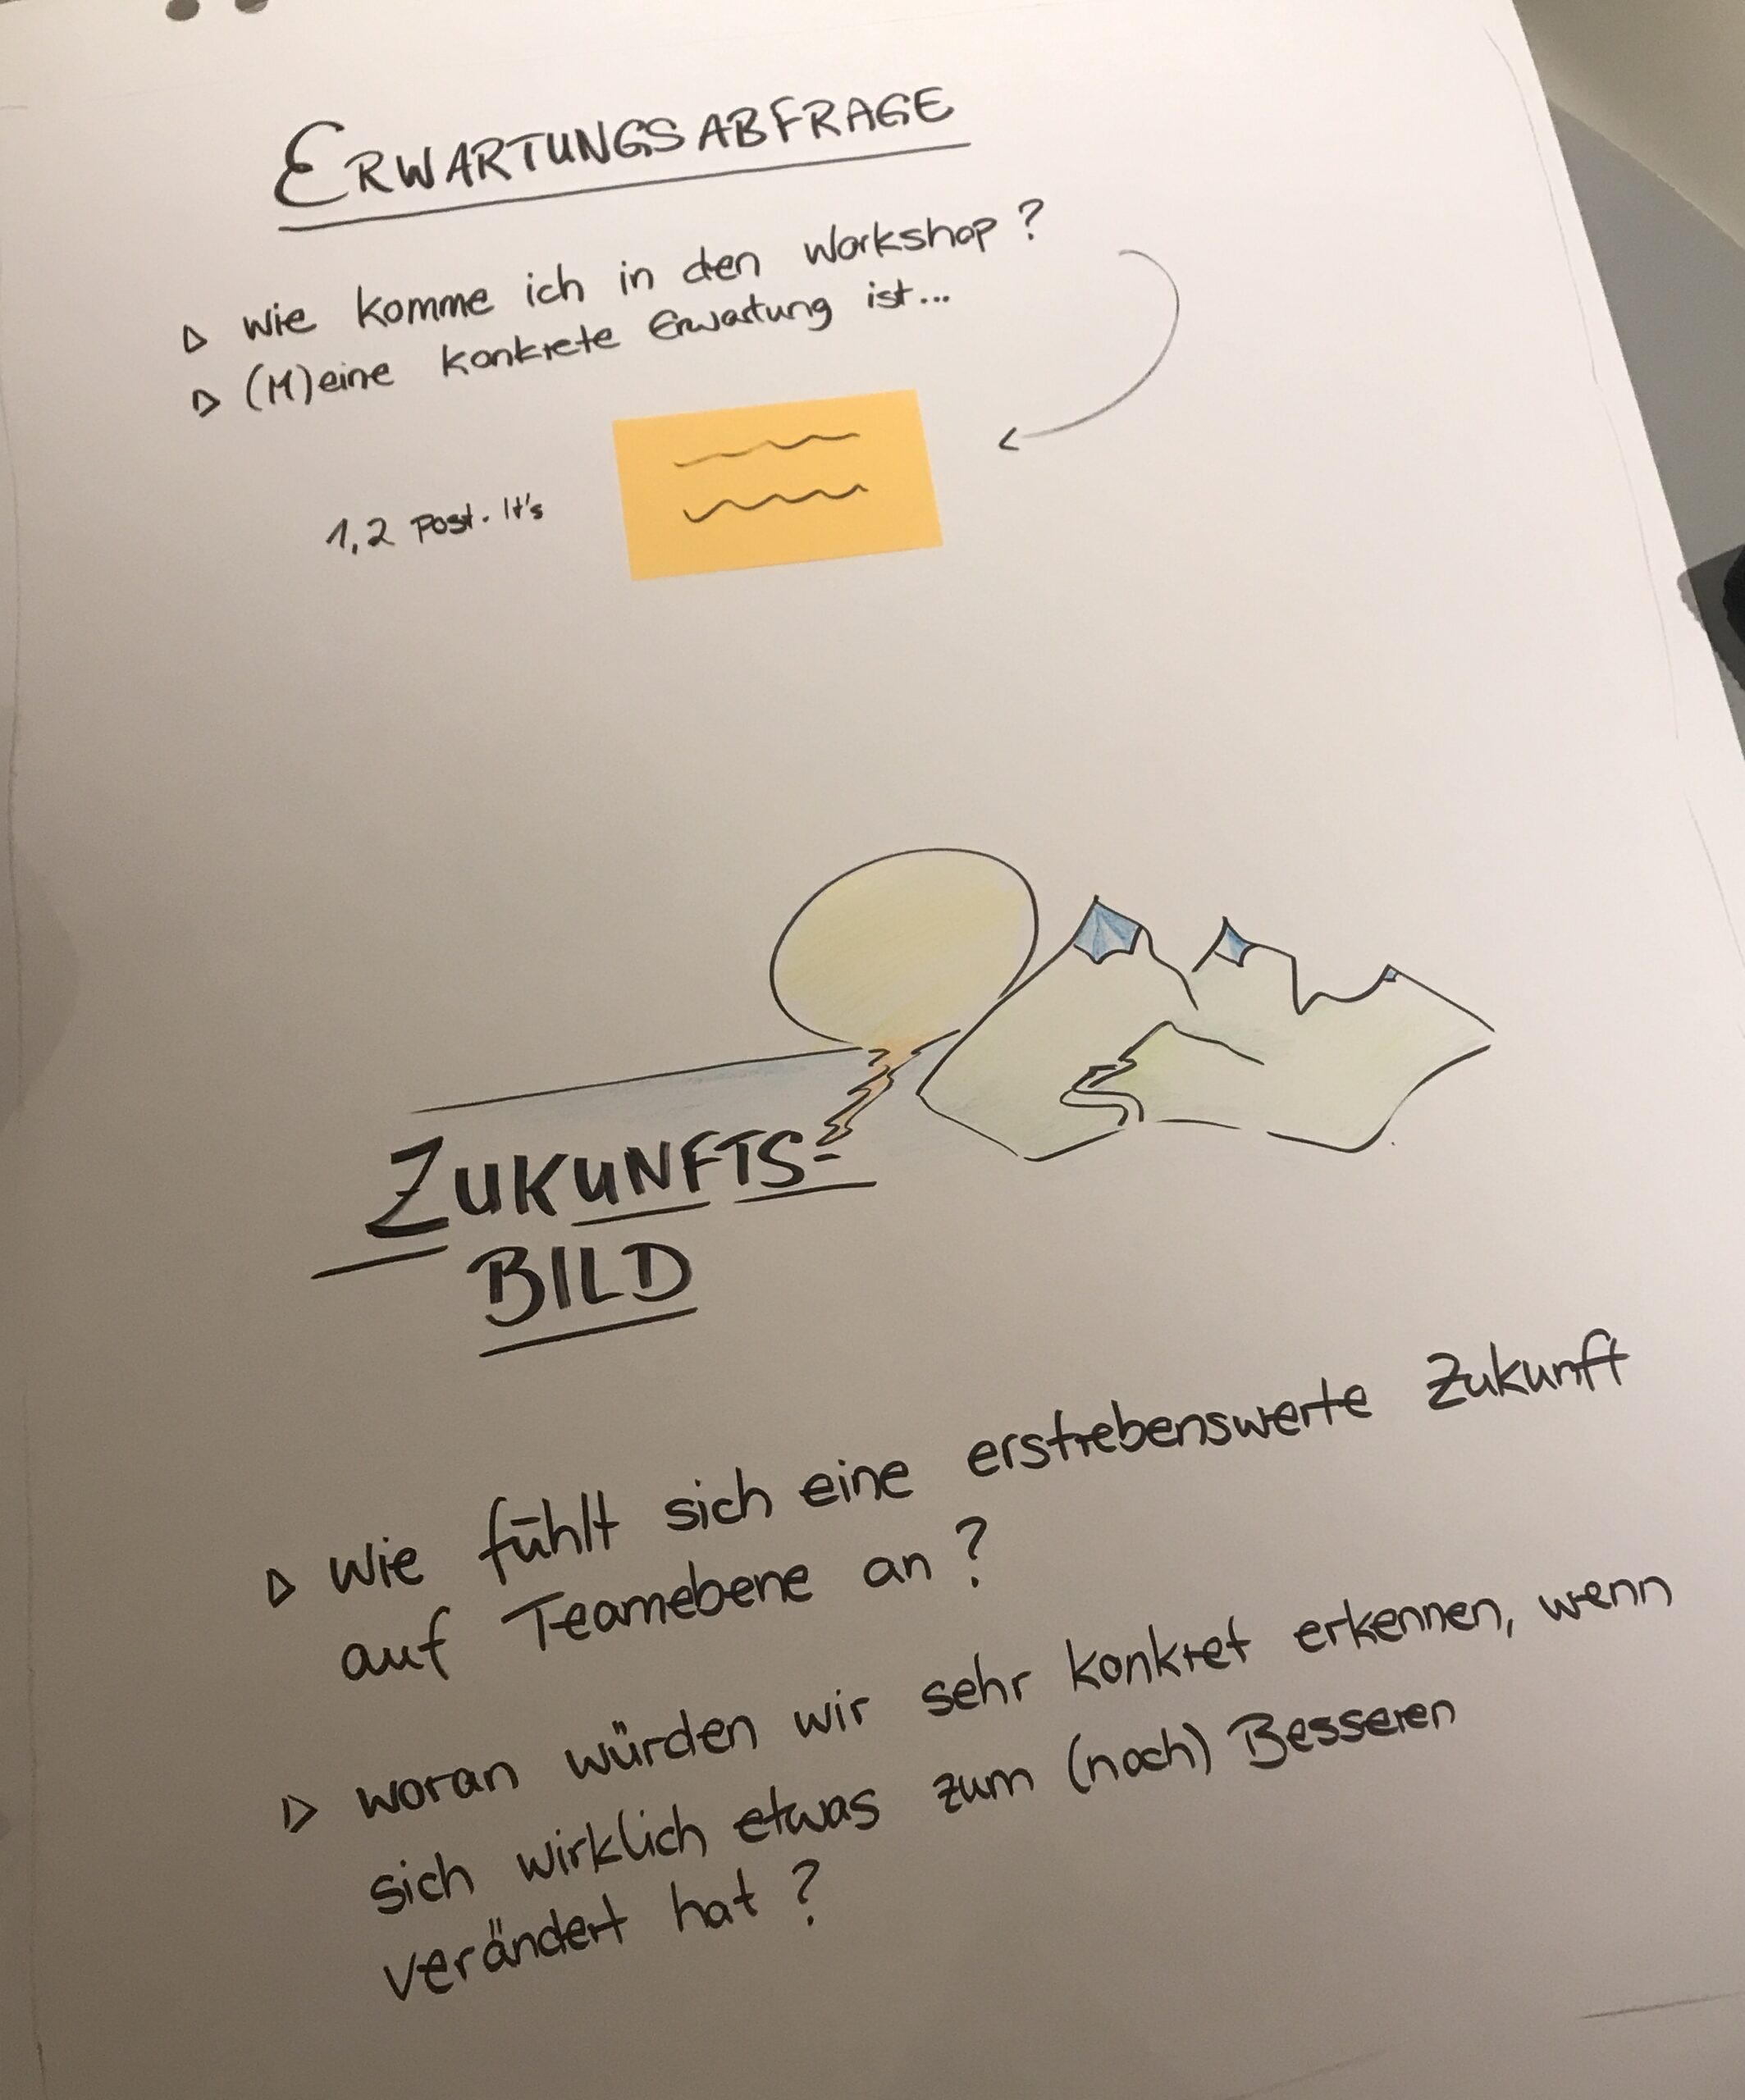 ERWARTUNGSABFRAGE
▷ Wie komme ich in den Workshop?
▷ (M)eine konkrete Erwartung ist...
1,2 Post-It's
ZUKUNFTS-
BILD
▷ Wie fühlt sich eine erstrebenswerte Zukunft
auf Teamebene an?
▷ woran würden wir sehr konkret erkennen, wenn
sich wirklich etwas zum (noch) Besseren
verändert hat?